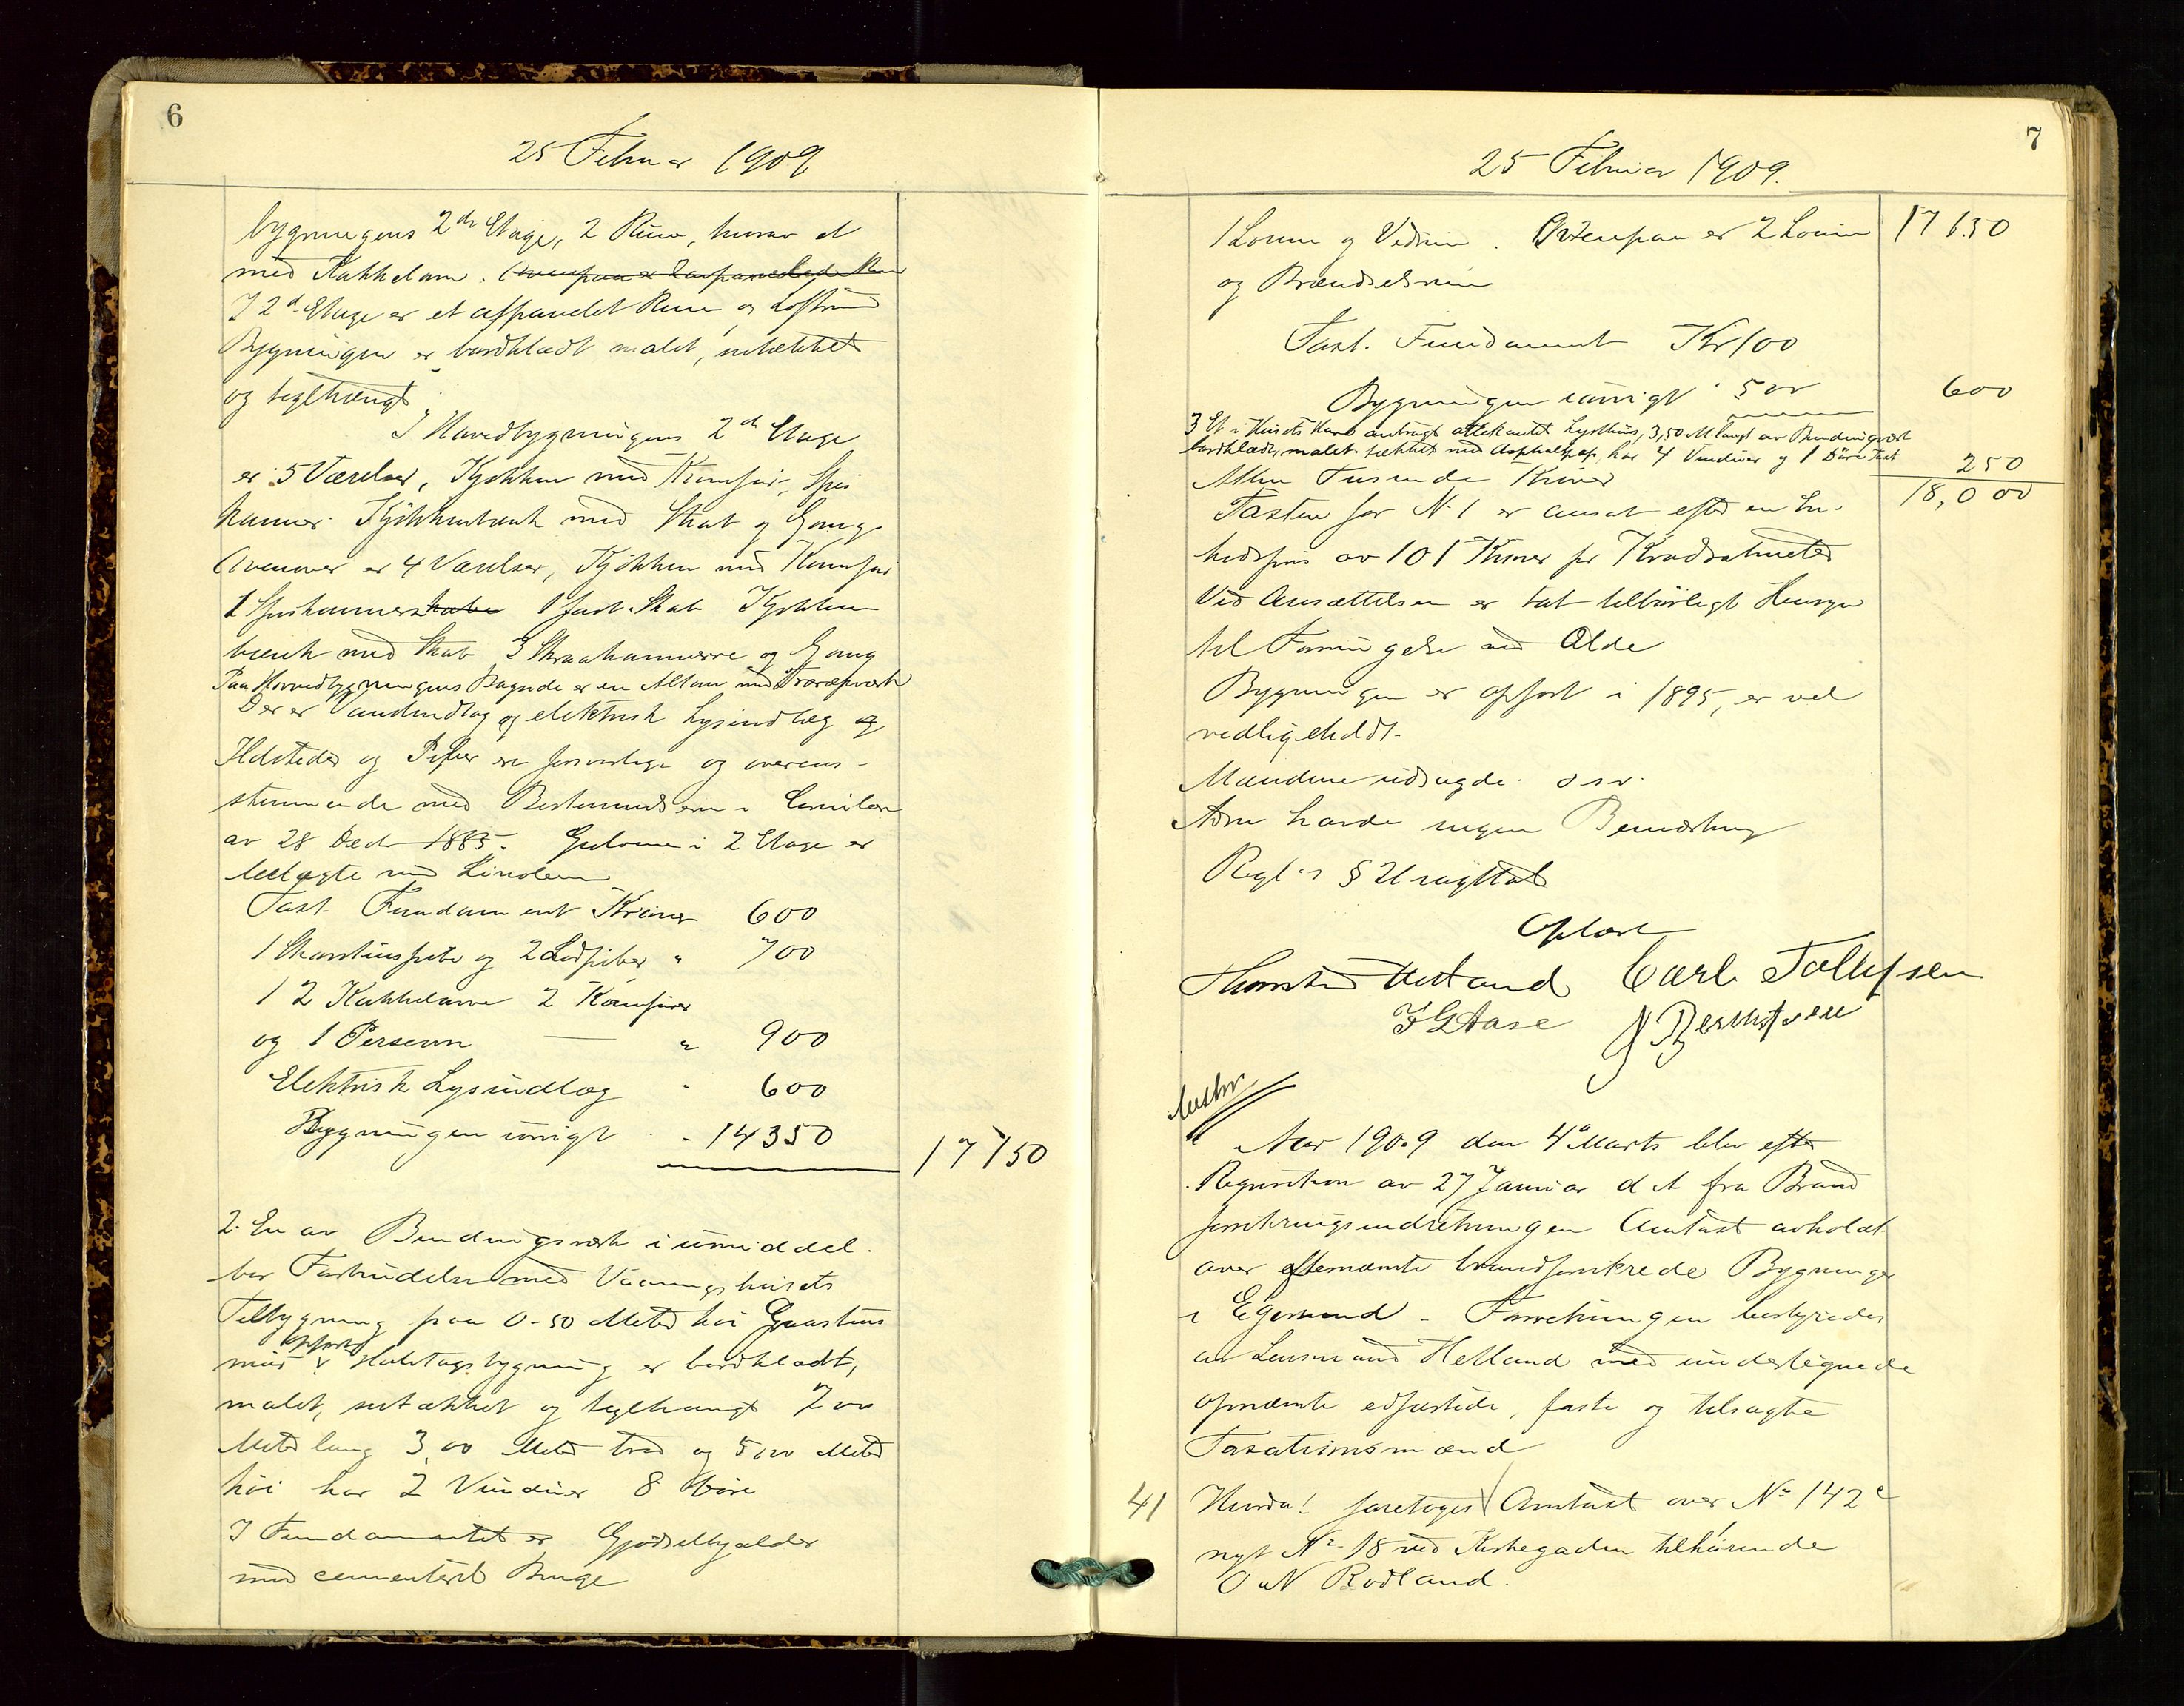 6
25 Februar 1909
bygningens 2den Etage, 2 Rum, hvorav et
med Kakkelovn. Ovenpaa er 2 avpanelede Rum
I 2d Etage er et afpanelet Rum og Loftrum
Bygningen er bordklædt malet, sutækket
og teglhængt
I Hovedbygningens 2den Etage
er 5 Værelser, Kjøkken med Komfur, Spis
kammer Kjøkkenbænk med Skab og Gang
Ovenover er 4 Værelser, Kjøkken med Komfur
1 Spiskammer 1 fast Skab Kjøkken
bænk med Skab 3 Skraakammerse og Gang
Paa Hovedbygningens Bagside er en Altan med Trærækværk
Der er Vandindlæg og elektrisk Lysindlæg og
Ildsteder og Piber er forsvarlige og overens-
stemmende med Bestemmelserne i Cirkulære
av 28 Decbr 1885. Gulvene i 2 Etage er
belagte med Linoleum
Taxt. Fundament Kroner 600
1 Skorstenspibe og 2 Ledpiber " 700
12 Kakkelovne 2 Komfurer
og 1 Persenn — " 900
Elektrisk Lysindlæg " 600
Bygningen iøvrigt - 14350
17150
2. En av Bindingsværk i umiddel-
bar Forbindelse med Vaaningshusets
Tilbygning paa 0-50 Meter høi Graastens
mur opført Halvtagsbygning er bordklædt,
malet, sutækket og teglhængt 7 00
Meter lang 3,00 Meter bred og 5,00 Meter
høi har 2 Vinduer 8 Døre
I Fundamentet er Gjødselkjælder
med cementeret Binge
7
25 Februar 1909.
1 Lovum og Vedrum. Ovenpaa er 2 Lovum 17150
og Brændselsrum
Taxt. Fundament Kr 100
Bygningen iøvrigt " 500 600
3 Et i Husets Have anbragt ottekantet Lysthus, 3,50 M. langt av Bindingsværk
bordklædt, malet. tækket med Asphaltpap, har 4 Vinduer og 1 Dør Taxt 250
Atten Tusinde Kroner 18,000
Taxten for N. 1 er ansat efter en En-
hedspris av 101 Kroner pr Kvadratmeter
Ved Ansættelsen er tat tilbørligt Hensyn
til Forringelse ved Ælde
Bygningen er opført i 1895, er vel
vedligeholdt.
Mændene udsagde. osv.
Aase havde ingen Bemærkning
Regl.s § 21 iagttat
Oplæst
Thorstein Hetland Carl Tollefsen
F G Aase J Berentsen
Aar 1909 den 4de Marts blev efter
Requisition av 27 Januar d A fra Brand
forsikringsindretningen Omtaxt avholdt
over eftenævnte brandforsikrede Bygninger
i Egersund - Forretningen bestyredes
av Lensmand Hetland med undertegnede
opnævnte edfæstede, faste og tilsagte
Taxationsmænd
41 Hvorda! foretoges Omtaxt over No 142 c
nyt No 18 ved Kirkegaden tilhørende
O N Rodland.